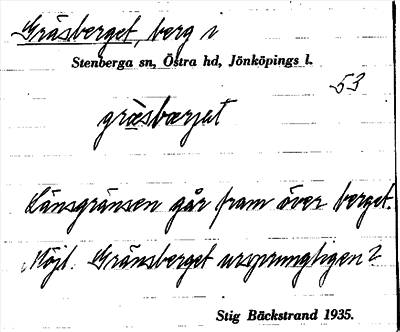 Gräsberget, berg i
Stenberga sn, Östra hd, Jönköpings l.
53
gräsbærjat
Länsgränsen går fram över berget.
Möjl. Gränsberget ursprungligen?
Stig Bäckstrand 1935.